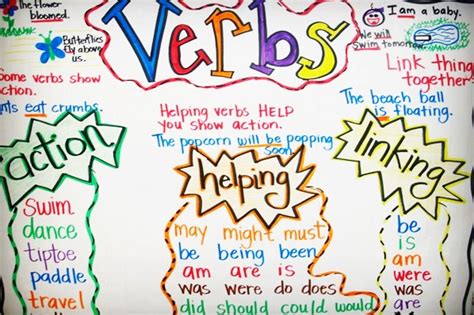 The flower
bloomed.
Butterflies
fly above
us.
Verbs
I am a baby.
We will
swim tomorrow.
Some verbs show
action.
eat crumbs.
Helping verbs HELP
you show action.
The popcorn will be popping
soon
Link things
together.
The beach ball
is floating.
action
swim
dance
tiptoe
paddle
travel
helping
may might must
be being been
am are is
was were do does
did should could would
linking
be
is
am
were
was
are